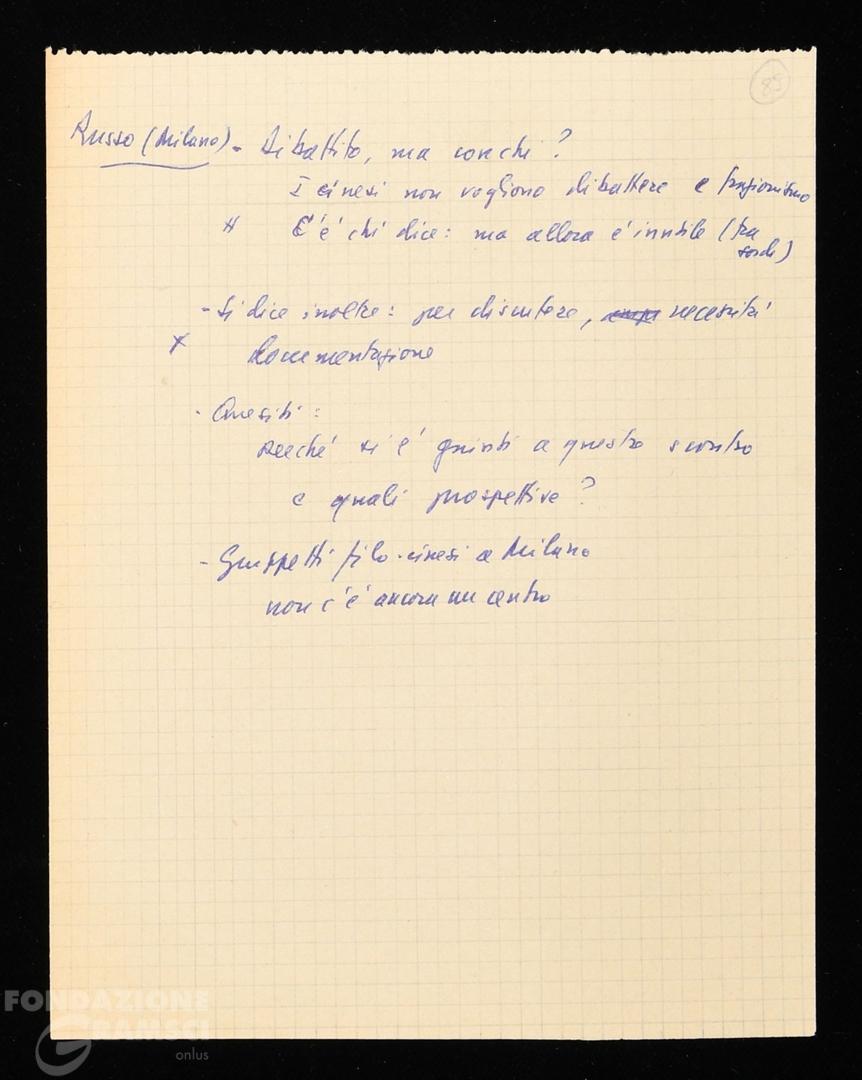 85
Russo (Milano) - Dibattito, ma con chi?
I cinesi non vogliono dibattere e frazionismo
# C'è chi dice: ma allora è inutile (tra
sordi)
- Si dice inoltre: per discutere, necessità
x documentazione
- Quesiti:
Perché si è giunti a questo scontro
e quali prospettive?
- Gruppetti filo-cinesi a Milano
non c'è ancora un centro
FONDAZIONE
GRAMSCI
onlus